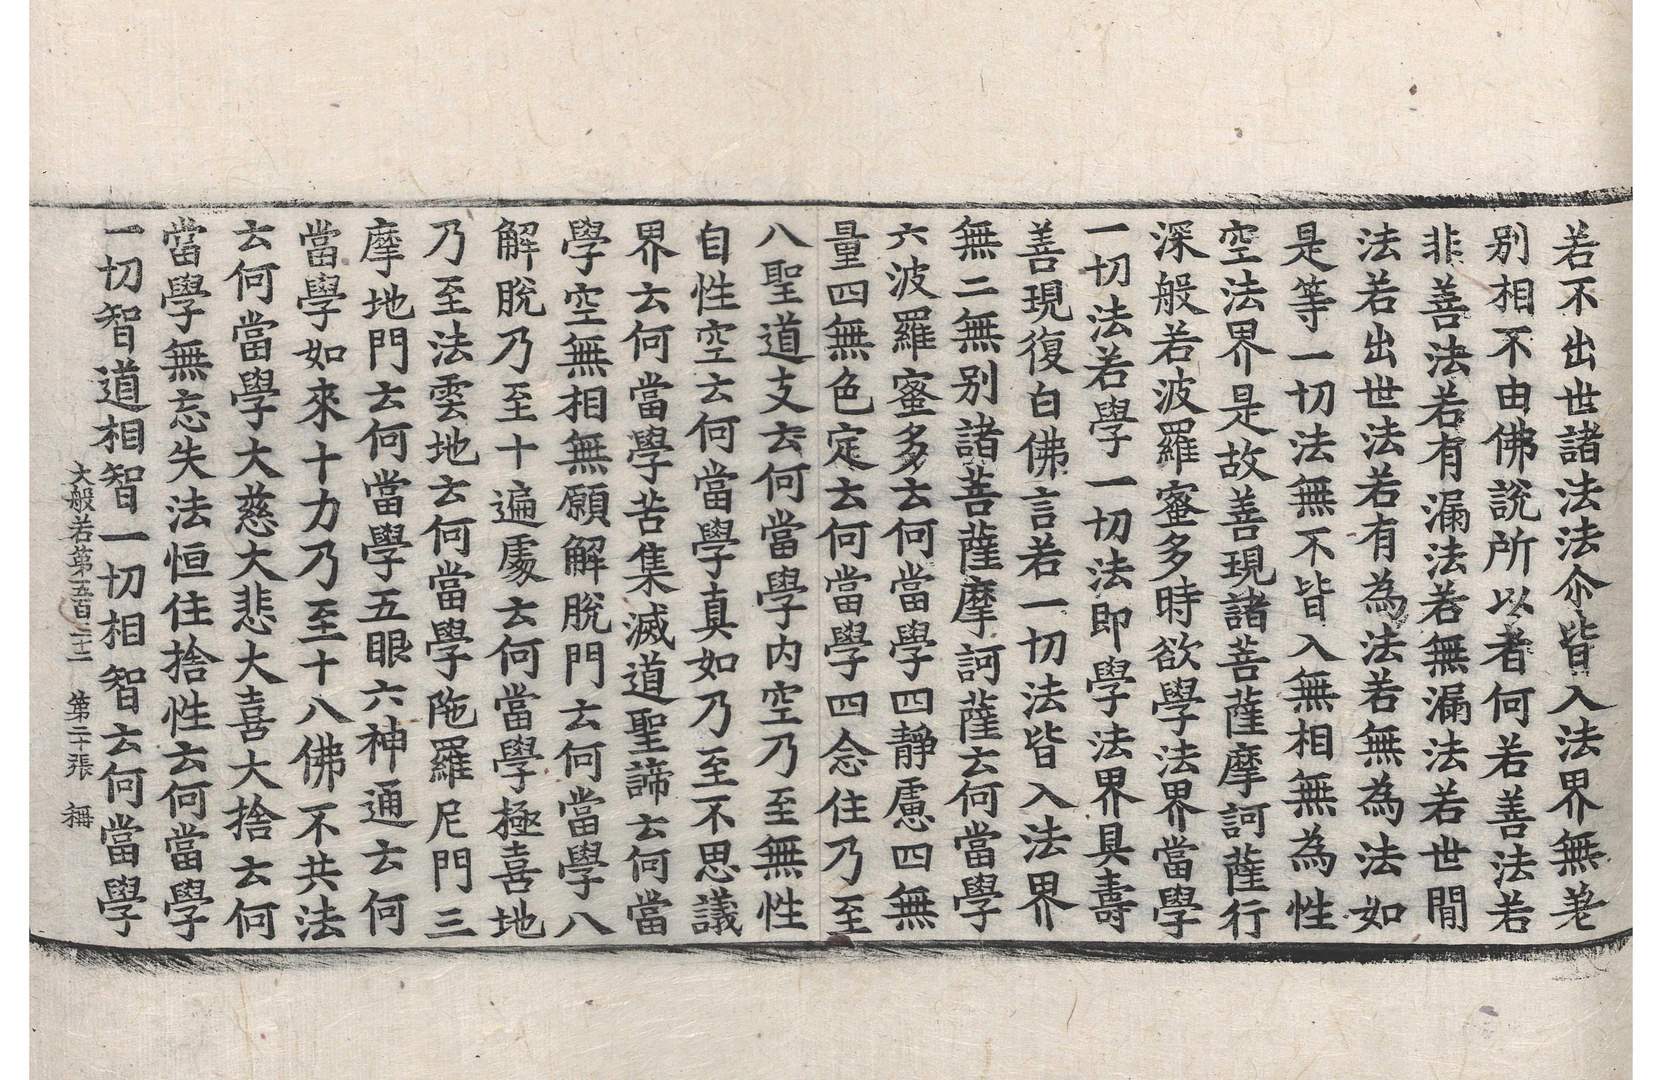 若不出世諸法法尒皆入法界無差
別相不由佛說所以者何若善法若
非善法若有漏法若無漏法若世間
法若出世法若有為法若無為法如
是等一切法無不皆入無相無為性
空法界是故善現諸菩薩摩訶薩行
深般若波羅蜜多時欲學法界當學
一切法若學一切法即學法界具壽
善現復白佛言若一切法皆入法界
無二無別諸菩薩摩訶薩云何當學
六波羅蜜多云何當學四靜慮四無
量四無色定云何當學四念住乃至
八聖道支云何當學内空乃至無性
自性空云何當學真如乃至不思議
界云何當學苦集滅道聖諦云何當
學空無相無願解脫門云何當學八
解脫乃至十遍處云何當學極喜地
乃至法雲地云何當學陁羅尼門三
摩地門云何當學五眼六神通云何
當學如來十力乃至十八佛不共法
云何當學大慈大悲大喜大捨云何
當學無忘失法恒住捨性云何當學
一切智道相智一切相智云何當學
大般若第五百二十二 第二十張